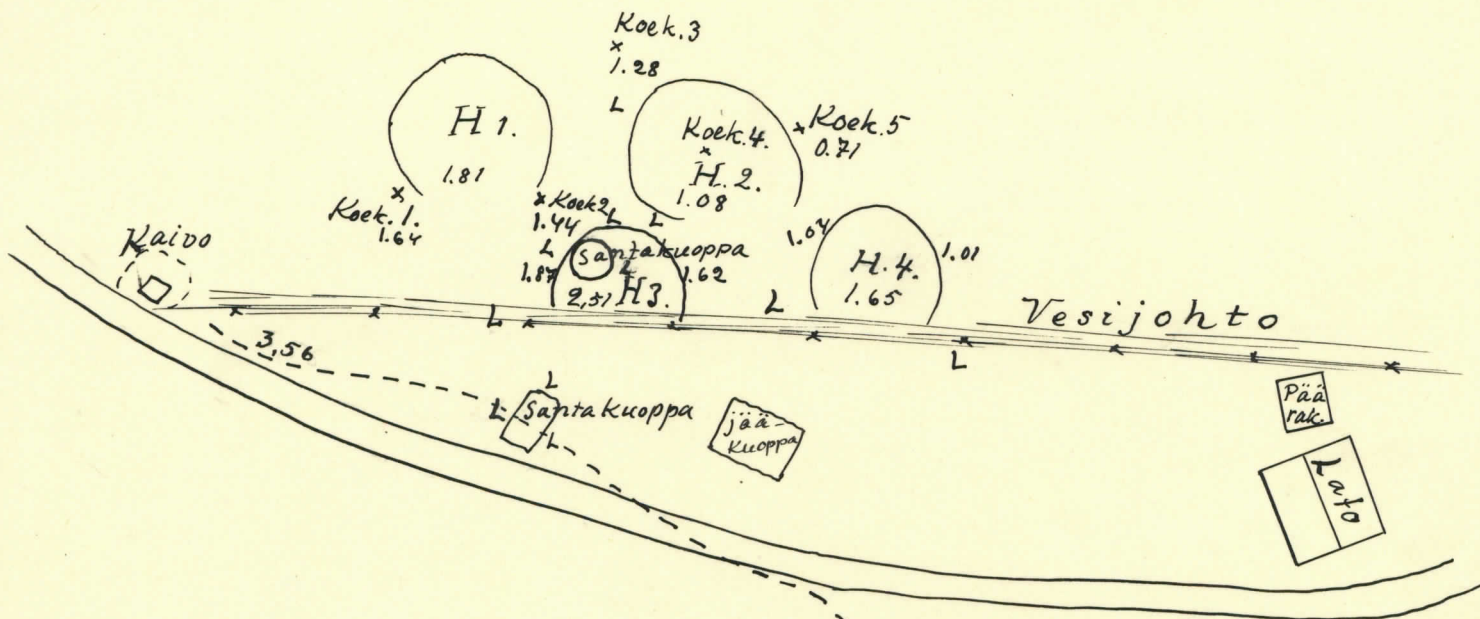 Koek.3
1.28
L
H 1.
1.81
Koek.4.
H. 2.
1.08
Koek.5
0.71
Koek. 1.
1.64
Koek2
1.44
L
L
L
1.87
Santakuoppa
L
1.62
2,51 H3.
1.04
H. 4.
1.65
1.01
Kaivo
L
L
Vesijohto
L
3,56
L
L
Santakuoppa
L
jää-
kuoppa
Pää
rak.
Lato